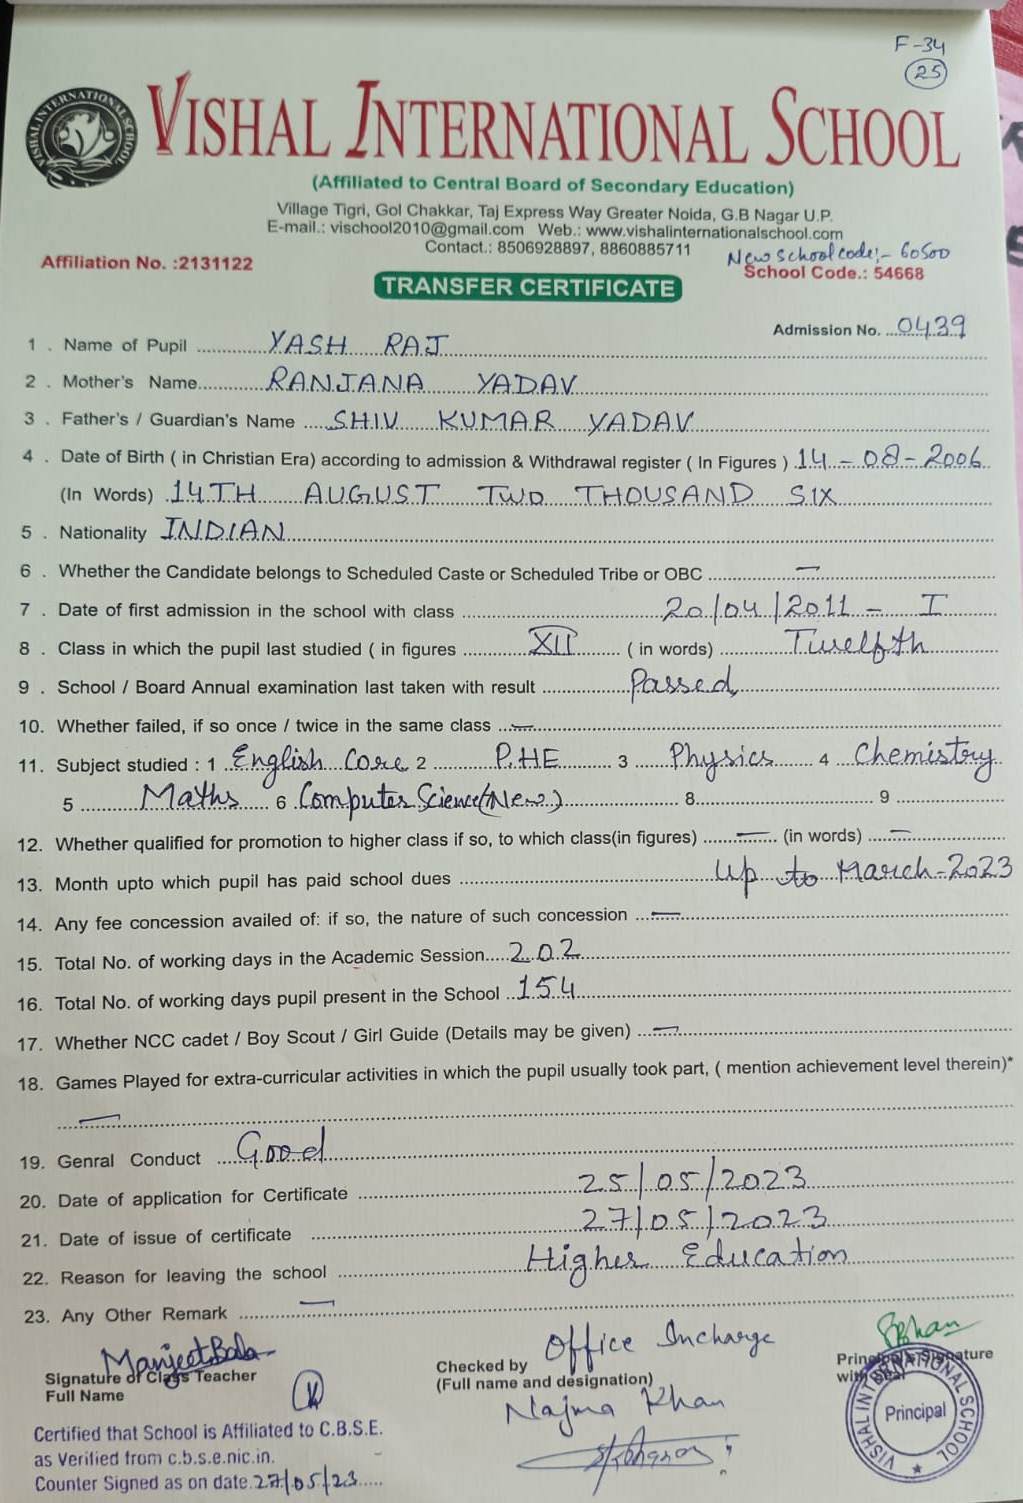 F-34
25
VISHAL INTERNATIONAL SCHOOL
VISHAL INTERNATIONAL SCHOOL
(Affiliated to Central Board of Secondary Education)
Village Tigri, Gol Chakkar, Taj Express Way Greater Noida, G.B Nagar U.P.
E-mail.: vischool2010@gmail.com Web.: www.vishalinternationalschool.com
Contact.: 8506928897, 8860885711
New school code:- 60500
Affiliation No. :2131122 School Code.: 54668
TRANSFER CERTIFICATE
Admission No. ...0439
1 . Name of Pupil ............YASH RAJ
2 . Mother's Name............RANJANA YADAV
3 . Father's / Guardian's Name ....SHIV KUMAR YADAV
4 . Date of Birth ( in Christian Era) according to admission & Withdrawal register ( In Figures ) .14 - 08 - 2006
(In Words) .14TH AUGUST TWO THOUSAND SIX
5 . Nationality INDIAN
6 . Whether the Candidate belongs to Scheduled Caste or Scheduled Tribe or OBC ............—
7 . Date of first admission in the school with class ............20/04/2011 - I
8 . Class in which the pupil last studied ( in figures ............XII ........ ( in words) ............Twelfth
9 . School / Board Annual examination last taken with result ............Passed
10. Whether failed, if so once / twice in the same class ...—
11. Subject studied : 1 ..English Core 2 ..........P.HE.......... 3 ......Physics....... 4 ...Chemistry
5 ..........Maths..... 6 .Computer Science(New).......... 8.............................. 9 ....................
12. Whether qualified for promotion to higher class if so, to which class(in figures) ......—..... (in words) ....—
13. Month upto which pupil has paid school dues ............Up to March-2023
14. Any fee concession availed of: if so, the nature of such concession ...—
15. Total No. of working days in the Academic Session.....202
16. Total No. of working days pupil present in the School ..154
17. Whether NCC cadet / Boy Scout / Girl Guide (Details may be given) ...—
18. Games Played for extra-curricular activities in which the pupil usually took part, ( mention achievement level therein)*
....—
19. Genral Conduct ....Good
20. Date of application for Certificate ............25/05/2023
21. Date of issue of certificate ............27/05/2023
22. Reason for leaving the school ............Higher Education
23. Any Other Remark ............—
ManjeetBala
Signature of Class Teacher
Full Name
Office Incharge
Checked by
(Full name and designation)
Najma Khan
Principal's Signature
with Seal
VISHAL INTERNATIONAL SCHOOL
Principal
Certified that School is Affiliated to C.B.S.E.
as Verified from c.b.s.e.nic.in.
Counter Signed as on date.27/05/23.....